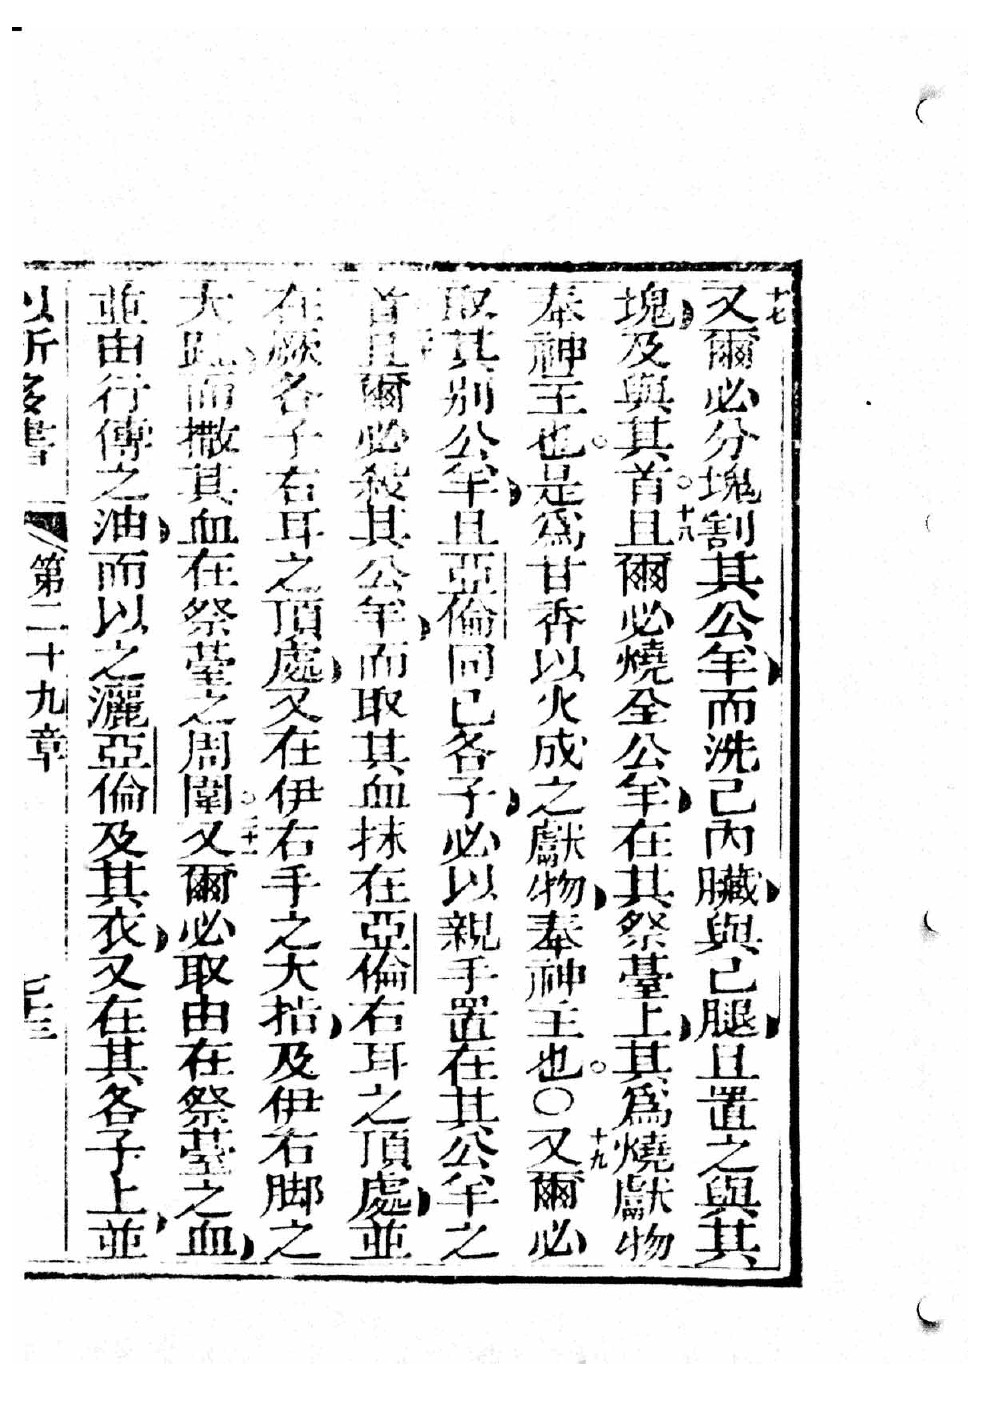 十七又爾必分塊割其公羊、而洗己內臟、與己腿、且置之與其
塊、及與其首。十八且爾必燒全公羊、在其祭臺上、其爲燒獻物
奉神主也。是爲甘香以火成之獻物、奉神主也。○十九又爾必
取其別公羊、且亞倫同己各子、必以親手置在其公羊之
首、且爾必殺其公羊、而取其血抹在亞倫右耳之頂處、並
在厥各子右耳之頂處、又在伊右手之大指、及伊右脚之
大趾、而撒其血在祭臺之周圍。二十一又爾必取由在祭臺之血、
並由行傅之油、而以之灑亞倫及其衣、又在其各子上、並
以所多書
第二十九章